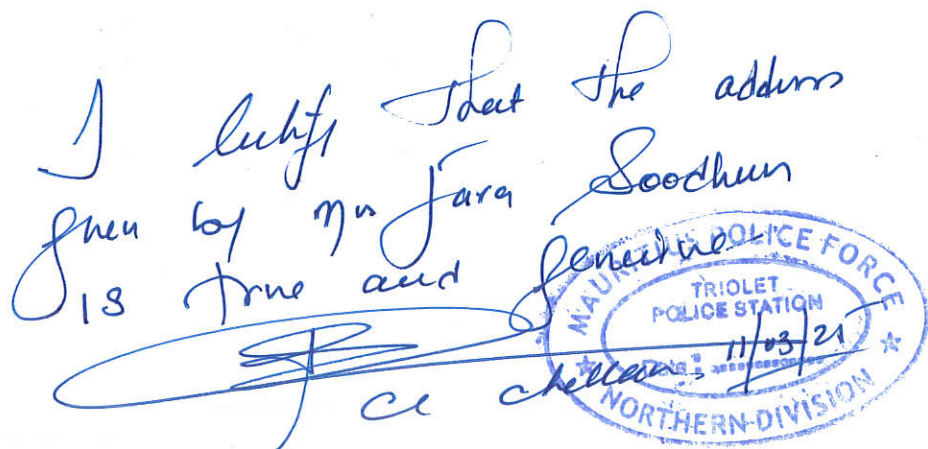 I certify that the address
given by Mrs Fara Soodhun
is true and genuine
MAURITIUS POLICE FORCE
TRIOLET
POLICE STATION
Date: 11/03/21
NORTHERN DIVISION